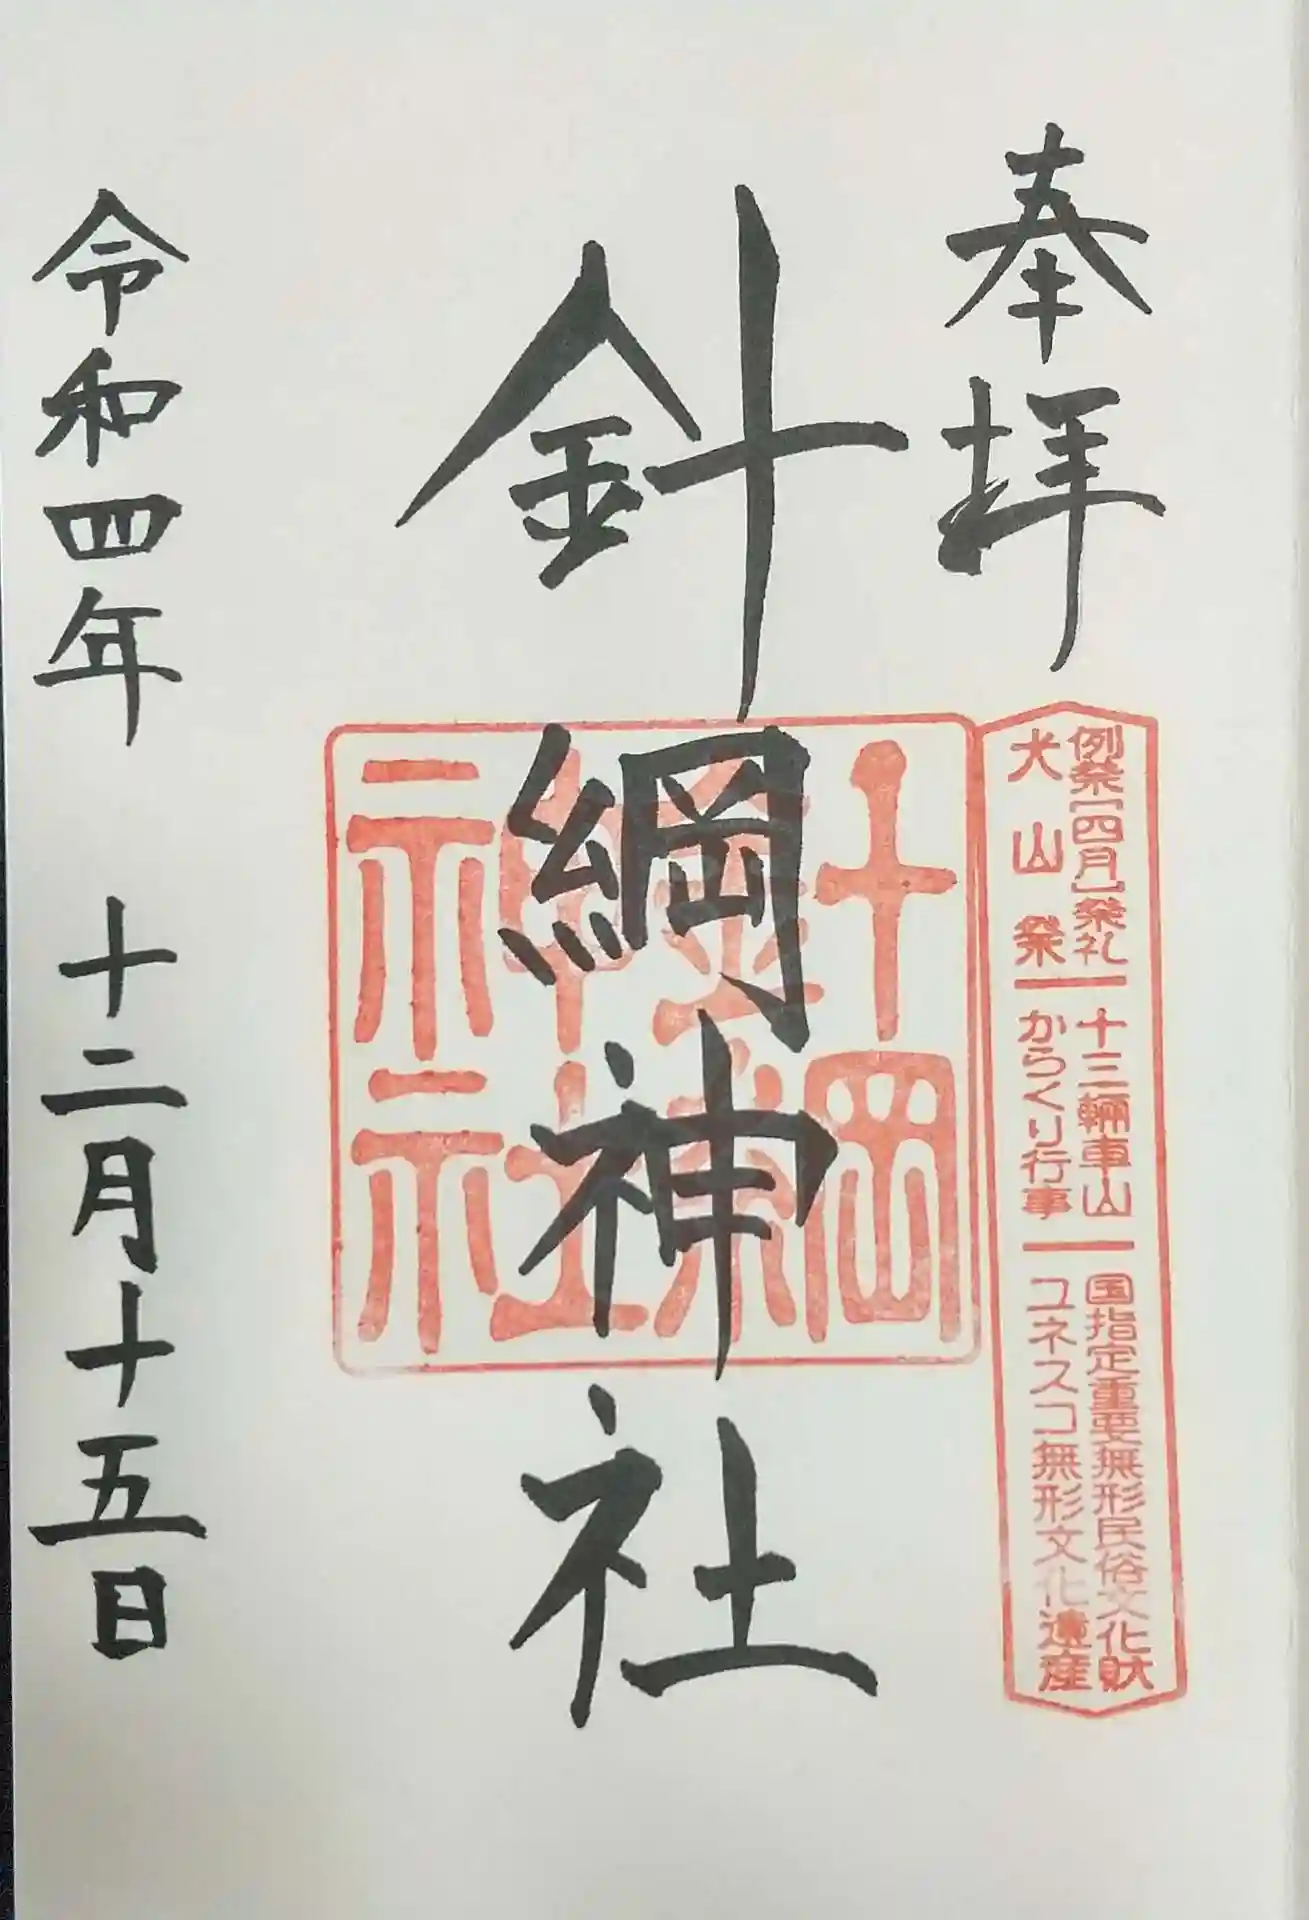 奉拝
例祭[四月]祭礼 十三輛車山 国指定重要無形民俗文化財
犬山祭 からくり行事 ユネスコ無形文化遺産
針綱神社
針綱
神社
令和四年 十二月十五日